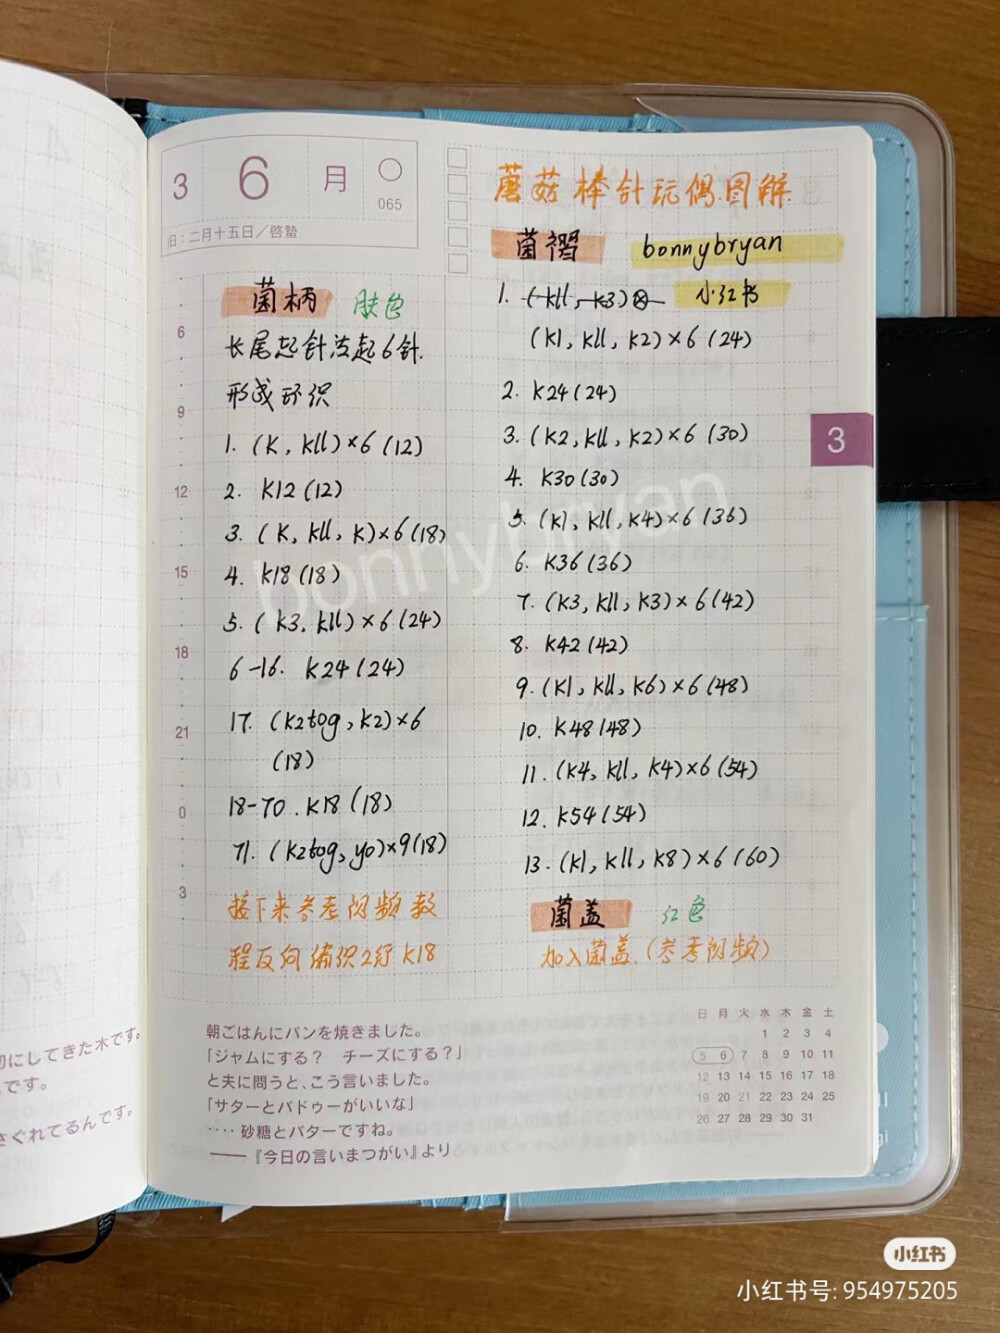 3 6 月
065
旧:二月十五日／啓蟄
菌柄 肤色
长尾起针法起6针.
形成环织
1. (K, kll)×6 (12)
2. K12 (12)
3. (K, kll, K)×6 (18)
4. K18 (18)
5. (K3, kll)×6 (24)
6-16. K24 (24)
17. (K2tog, K2)×6
(18)
18-70. K18 (18)
71. (K2tog, yo)×9 (18)
接下来参考视频教
程反向编织2行K18
6
9
12
15
18
21
0
3
蘑菇棒针玩偶图解
菌褶 bonnybryan
1. (kll, K3)⊗ 小红书
(K1, kll, K2)×6 (24)
2. K24 (24)
3. (K2, kll, K2)×6 (30)
4. K30 (30)
5. (K1, kll, K4)×6 (36)
6. K36 (36)
7. (K3, kll, K3)×6 (42)
8. K42 (42)
9. (K1, kll, K6)×6 (48)
10. K48 (48)
11. (K4, kll, K4)×6 (54)
12. K54 (54)
13. (K1, kll, K8)×6 (60)
菌盖 红色
加入菌盖.(参考视频)
3
bonnybryan
朝ごはんにパンを焼きました。
「ジャムにする？　チーズにする？」
と夫に問うと、こう言いました。
「サターとバドゥーがいいな」
‥‥砂糖とバターですね。
――『今日の言いまつがい』より
日 月 火 水 木 金 土
1 2 3 4
5 6 7 8 9 10 11
12 13 14 15 16 17 18
19 20 21 22 23 24 25
26 27 28 29 30 31
切にしてきた木です。
です。
さぐれてるんです。
小红书
小红书号: 954975205